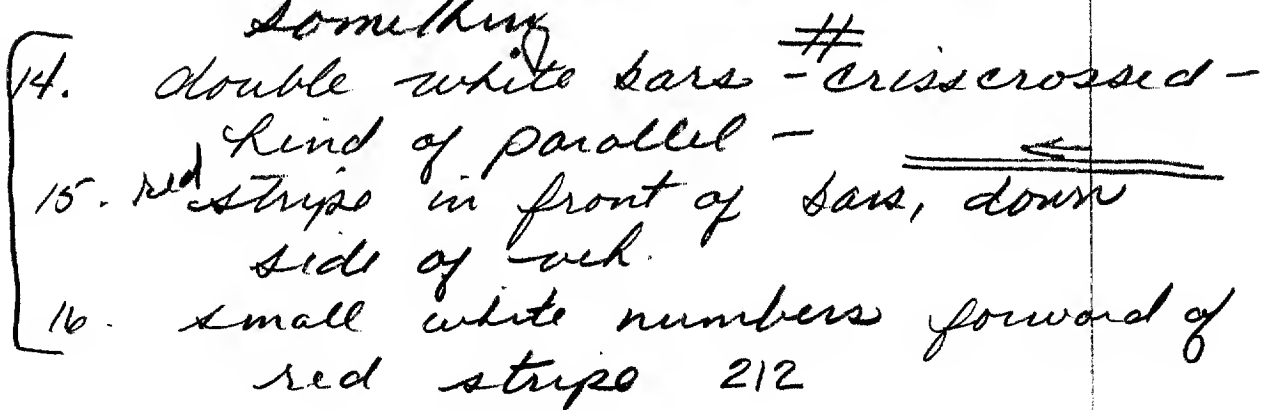 something
14. double white bars - crisscrossed -
kind of parallel -
15. red stripe in front of bars, down
side of veh.
16. small white numbers forward of
red stripe 212